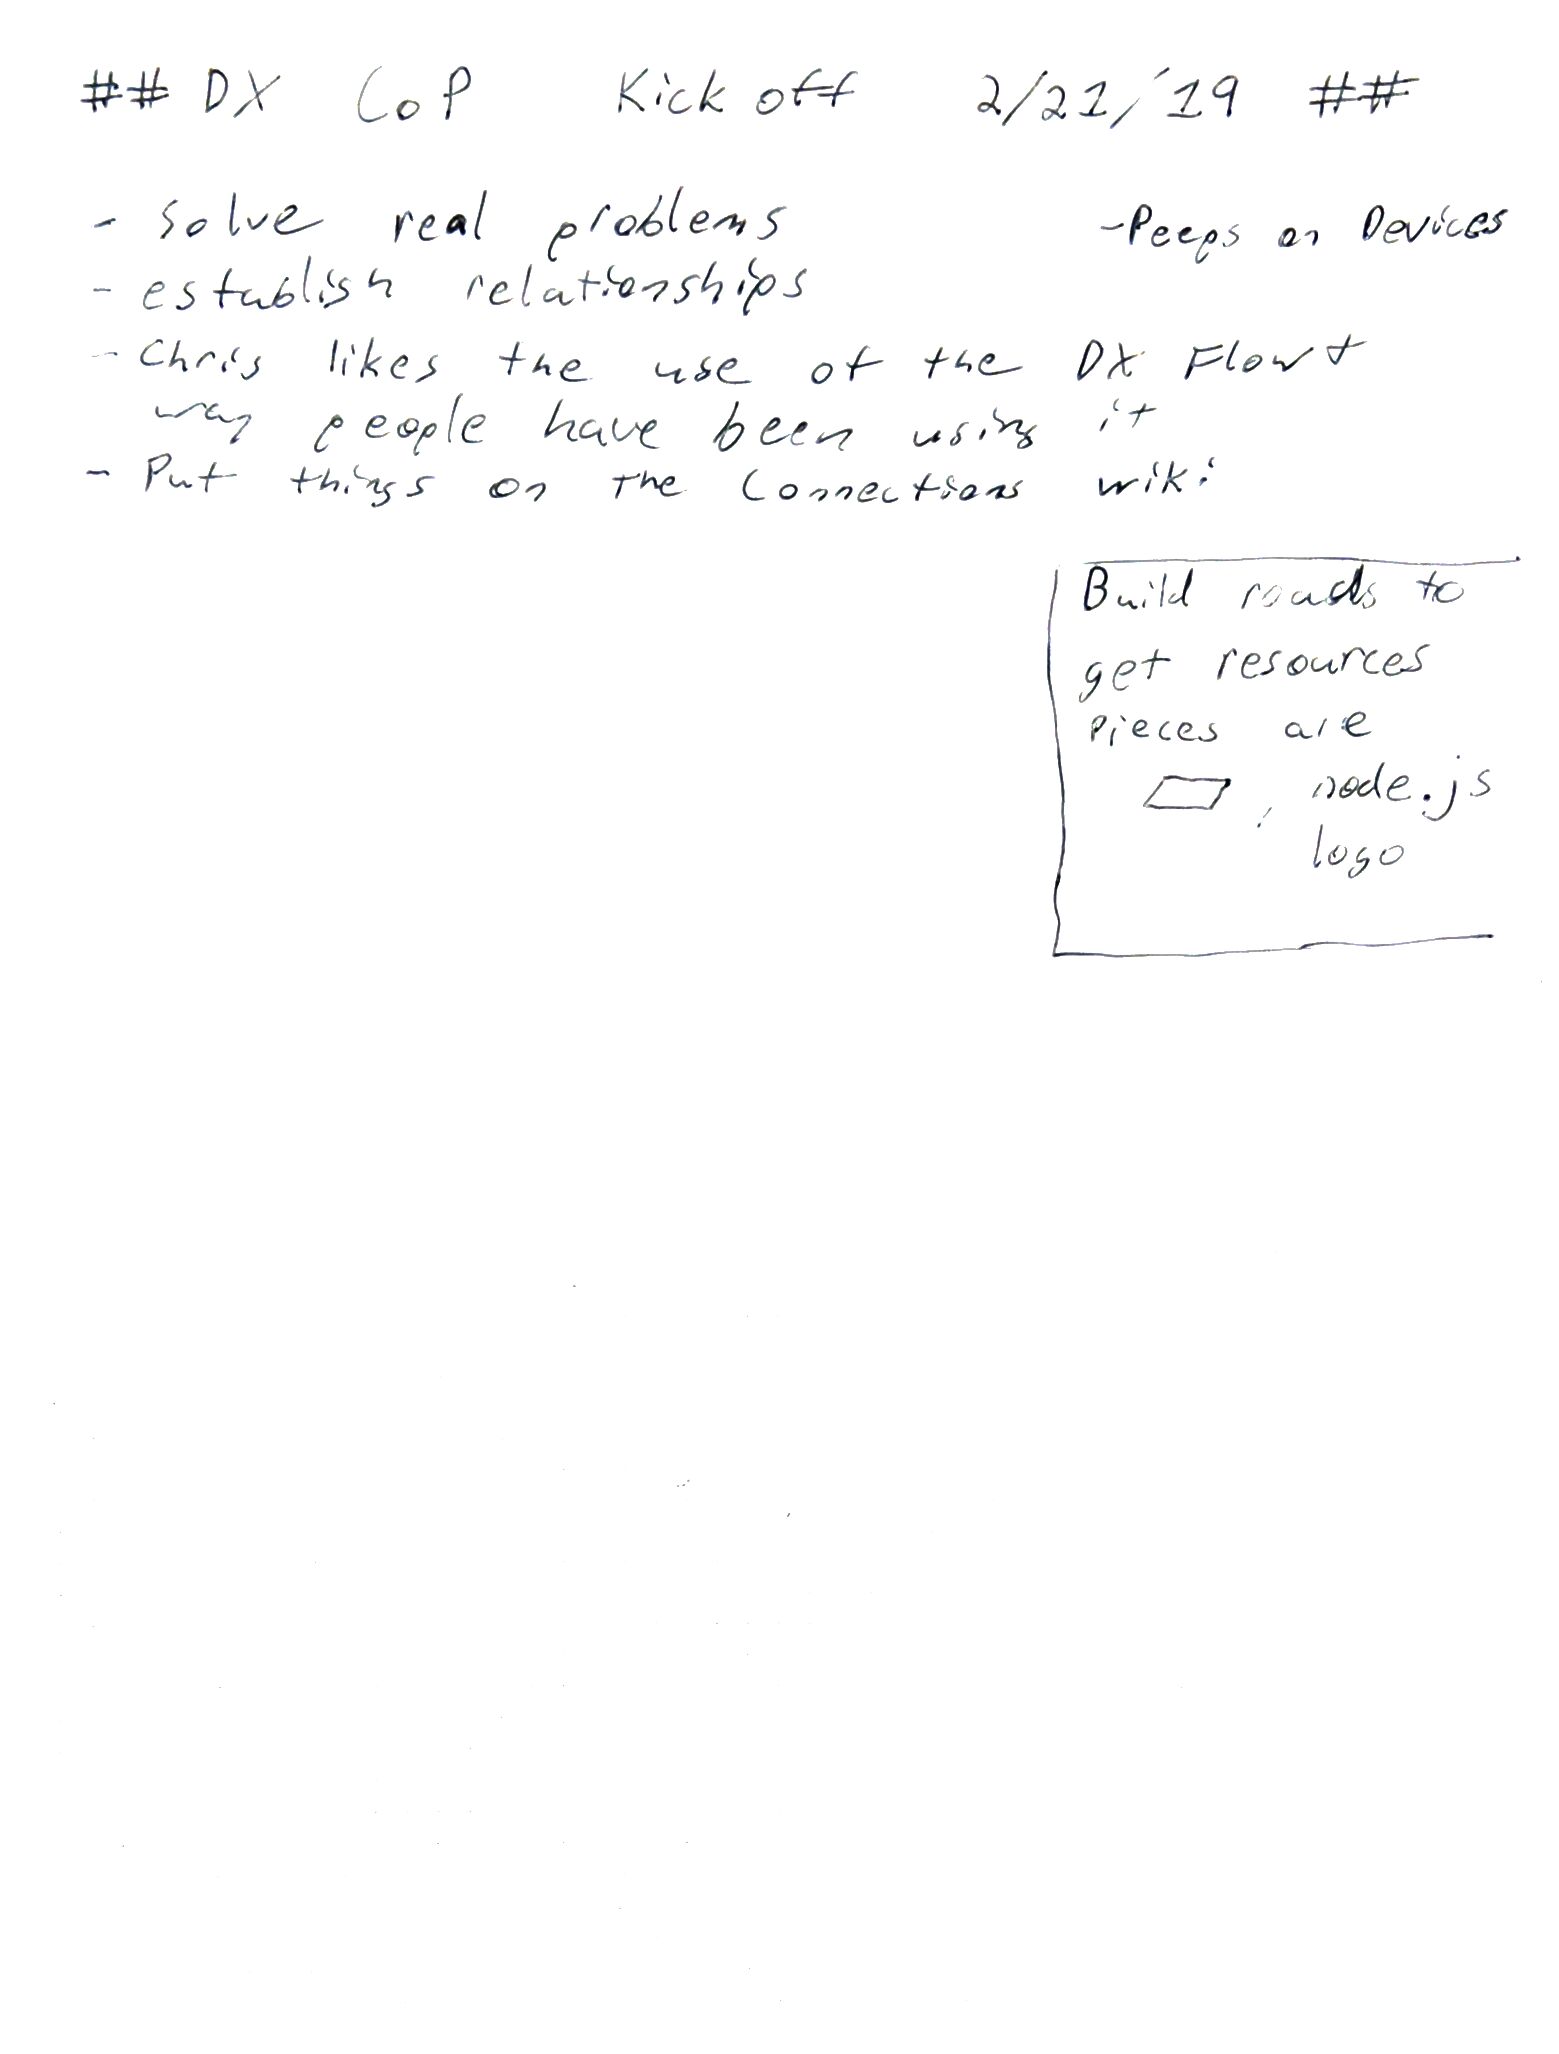 ## DX CoP Kick off 2/21/'19 ##
- solve real problems
- Peeps on Devices
- establish relationships
- Chris likes the use of the DX Flow +
way people have been using it
- Put things on the Connections wiki
Build roads to
get resources
Pieces are
, node.js
logo